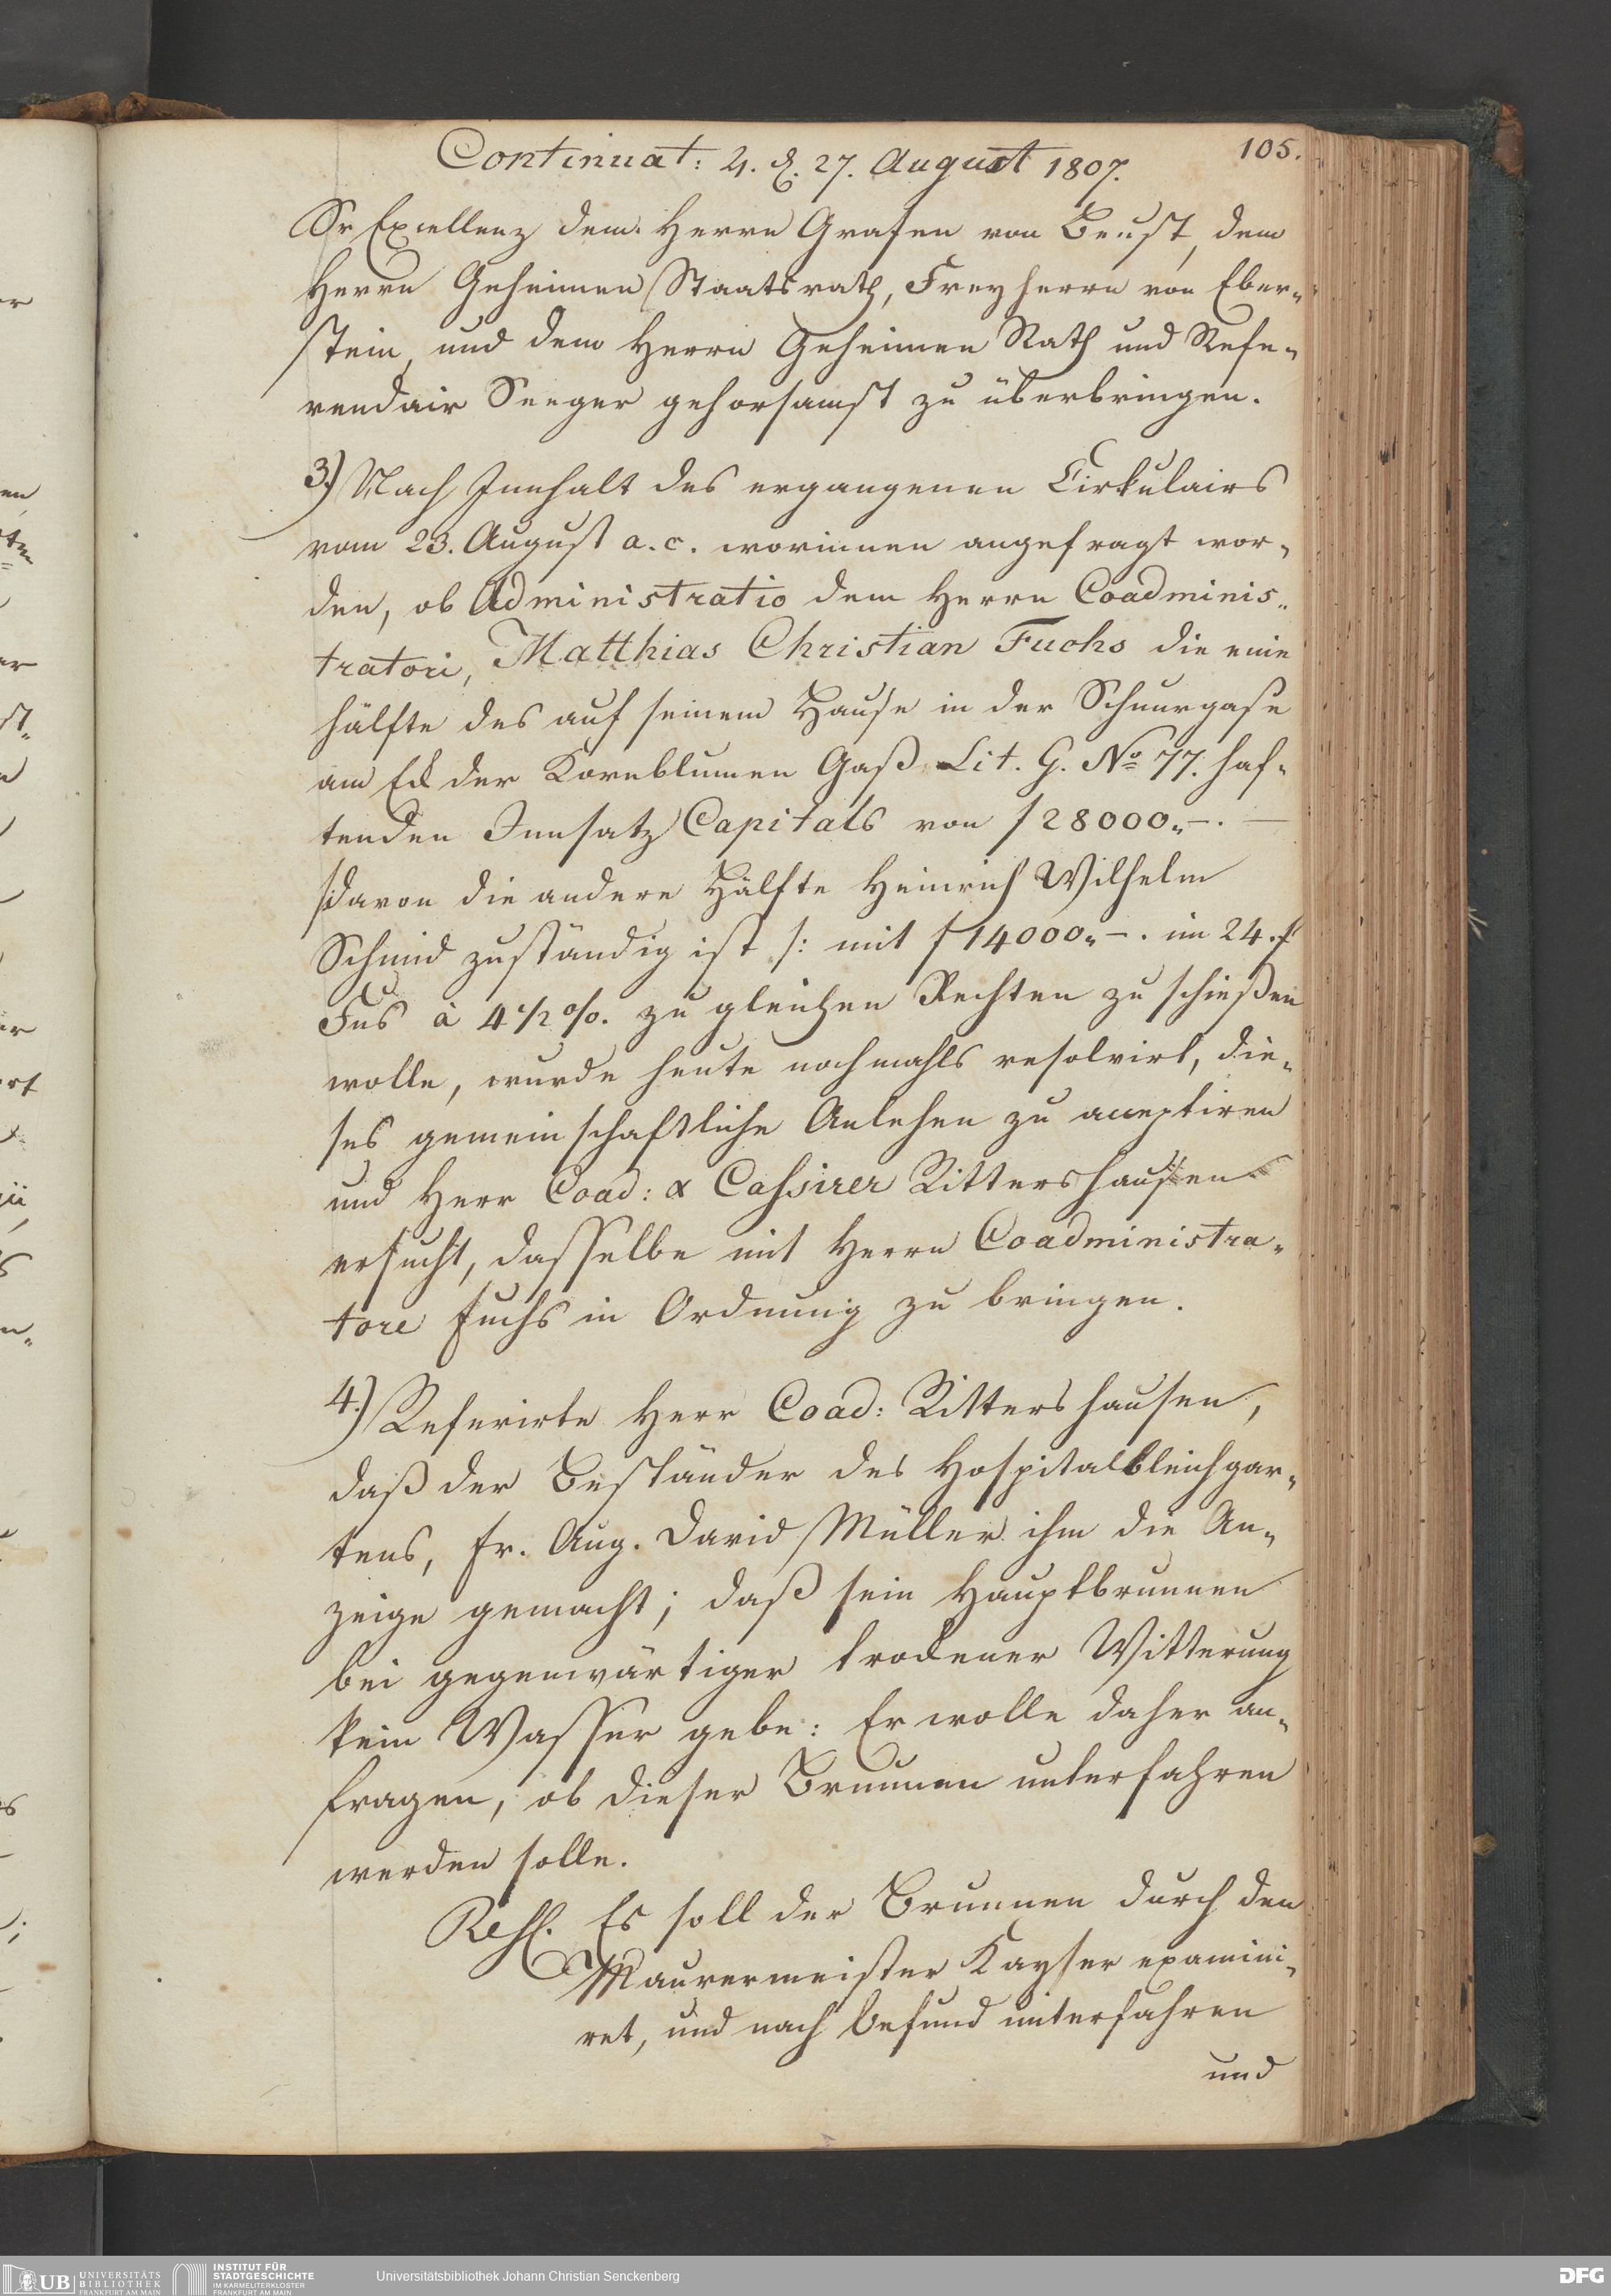 Continuat: 4. d. 27. August 1807.
105.
Sr Excellenz dem Herrn Grafen von Beust, dem
Herrn Geheimen Staatsrath, Freyherrn von Eber-
stein, und dem Herrn Geheimen Rath und Refe-
rendair Seeger gehorsamst zu überbringen.
3.) Nach Innhalt des ergangenen Cirkulairs
vom 23. August a. c. worinnen angefragt wor-
den, ob Administratio dem Herrn Coadminis-
tratori, Matthias Christian Fuchs die eine
hälfte des auf seinem Hause in der Schnurgase
am Eck der Kornblumen Gaß Lit. G. No 77. haf-
tenden Innsatz Capitals von f 28000.-.
/:davon die andere Hälfte Heinrich Wilhelm
Schmid zuständig ist /: mit f 14000.-. im 24. f
Fus à 4 1/2 %. zu gleichen Rechten zu schießen
wolle, wurde heute nochmahls resolvirt, die-
ses gemeinschaftliche Anlehen zu acceptiren
und Herr Coad: & Cassirer Rittershausen
ersucht, dasselbe mit Herrn Coadministra-
tore Fuchs in Ordnung zu bringen.
4.) Referirte Herr Coad: Rittershausen,
daß der Beständer des Hospitalbleichgar-
tens, Fr. Aug. David Müller ihm die An-
zeige gemacht; daß sein Hauptbrunnen
bei gegenwärtiger trockener Witterung
kein Wasser gebe: Er wolle daher an-
fragen, ob dieser Brunnen unterfahren
werden solle.
Resl. Es soll der Brunnen durch den
Maurermeister Kayser examini-
ret, und nach befund unterfahren
und
UB UNIVERSITÄTS
BIBLIOTHEK
FRANKFURT AM MAIN
INSTITUT FÜR
STADTGESCHICHTE
IM KARMELITERKLOSTER
FRANKFURT AM MAIN
Universitätsbibliothek Johann Christian Senckenberg
DFG